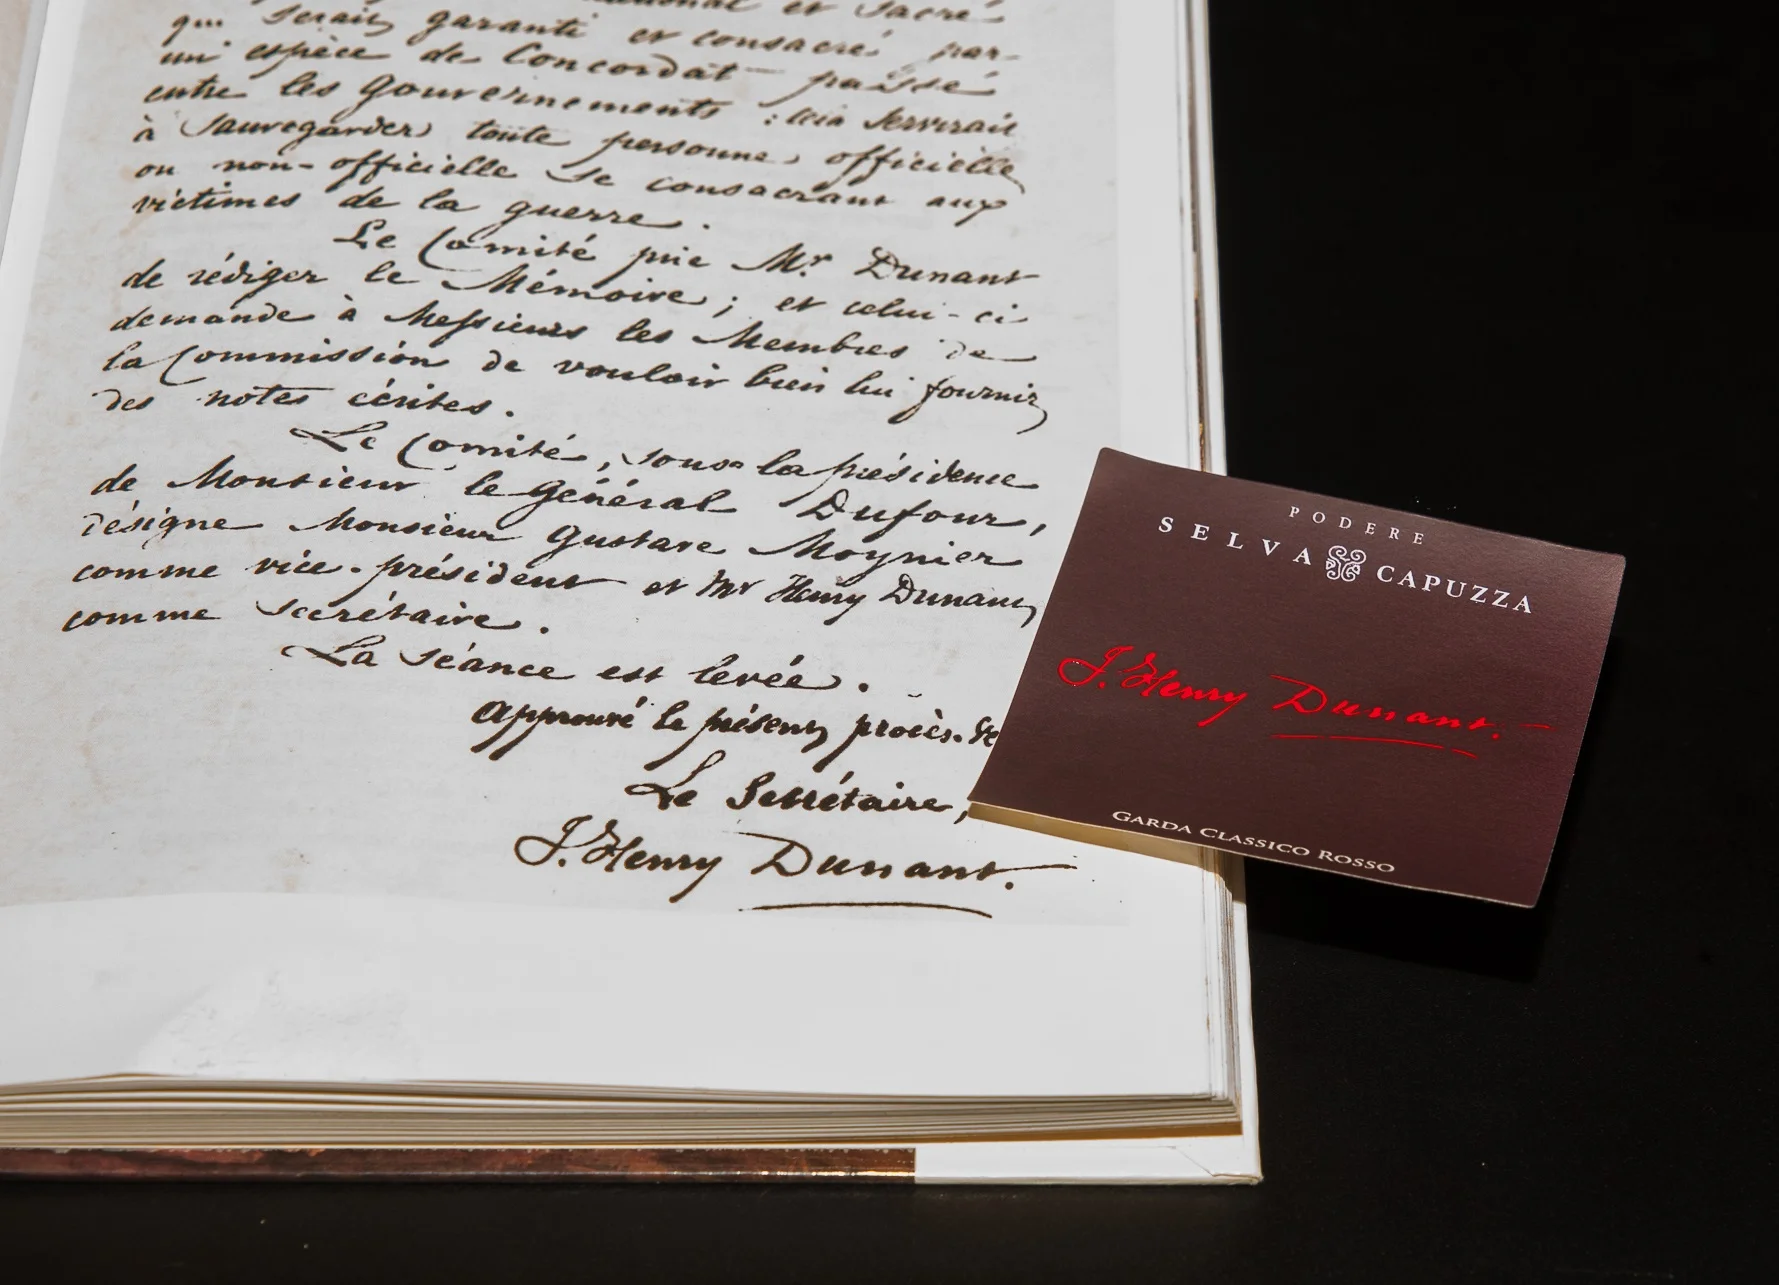 et Sacré
qui serait garanti et consacré par
un espèce de Concordat passé
entre les Gouvernements : cela servirait
à sauvegarder toute personne officielle
ou non-officielle se consacrant aux
victimes de la guerre.
Le Comité prie Mr. Dunant
de rédiger le Mémoire ; et celui-ci
demande à Messieurs les Membres de
la Commission de vouloir bien lui fournir
des notes écrites.
Le Comité, sous la présidence
de Monsieur le Général Dufour,
désigne Monsieur Gustave Moynier
comme vice-président et Mr Henry Dunant,
comme secrétaire.
La séance est levée.
Approuvé le présent procès-ve
Le Secrétaire,
J. Henry Dunant.
PODERE
SELVA CAPUZZA
J. Henry Dunant.
GARDA CLASSICO ROSSO